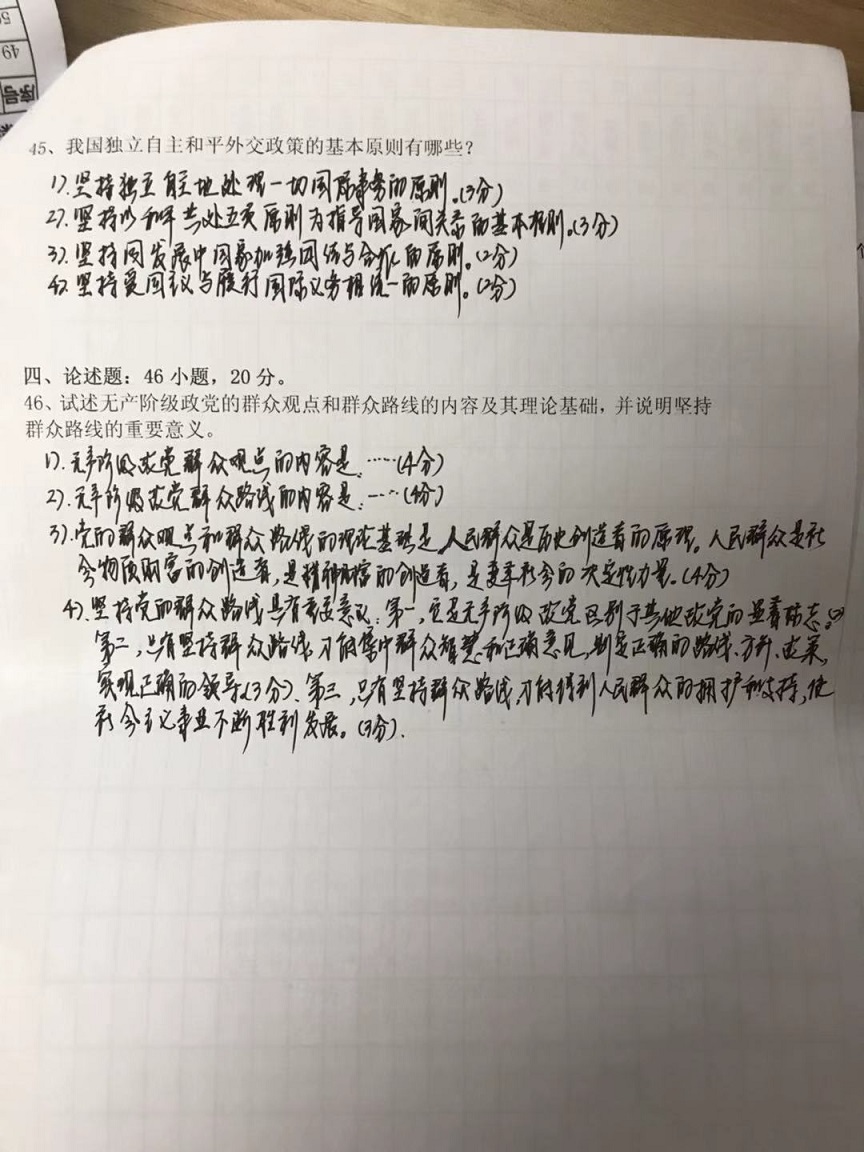 序号
49
50
45、我国独立自主和平外交政策的基本原则有哪些？
1).坚持独立自主地处理一切国际事务的原则。(3分)
2).坚持以和平共处五项原则为指导国家间关系的基本准则。(3分)
3).坚持同发展中国家加强团结与合作的原则。(2分)
4).坚持爱国主义与履行国际义务相统一的原则。(2分)
四、论述题：46 小题，20 分。
46、试述无产阶级政党的群众观点和群众路线的内容及其理论基础，并说明坚持
群众路线的重要意义。
1).无产阶级政党群众观点的内容是：……(4分)
2).无产阶级政党群众路线的内容是：……(4分)
3).党的群众观点和群众路线的理论基础是人民群众是历史创造者的原理。人民群众是社
会物质财富的创造者，是精神财富的创造者，是变革社会的决定性力量。(4分)
4).坚持党的群众路线具有重要意义：第一，它是无产阶级政党区别于其他政党的显著标志。
第二，只有坚持群众路线，才能集中群众智慧和正确意见，制定正确的路线、方针、政策，
实现正确的领导。(3分)、第三，只有坚持群众路线，才能得到人民群众的拥护和支持，使
社会主义事业不断胜利发展。(3分).